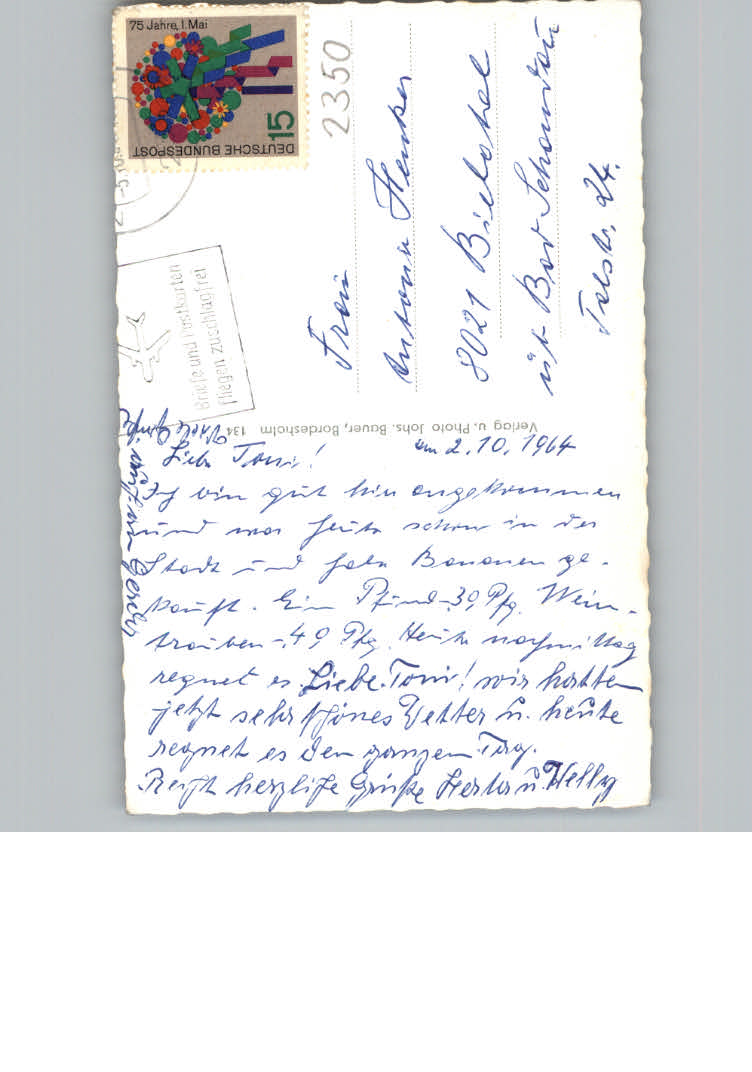 75 Jahre, 1. Mai
15
DEUTSCHE BUNDESPOST
2350
Briefe und Postkarten
fliegen zuschlagfrei
Frau
Antonie
8021 Bielatal
üb. Bad Schandau
Talstr. 24.
Verlag u. Photo Johs. Bauer, Bordesholm 134
am 2.10.1964
Liebe Toni!
Ich bin gut hier angekommen
und war heute schon in der
Stadt und habe Bananen ge-
kauft. Ein Pfund -,39 Pfg. Wein-
trauben -,49 Pfg. Heute nachmittag
regnet es. Liebe Toni! wir hatten
jetzt sehr schönes Wetter u. heute
regnet es den ganzen Tag.
Recht herzliche Grüße Herta u. Willy